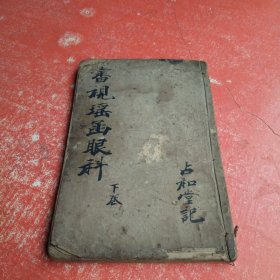 審視瑶函眼科
下底
占和堂記